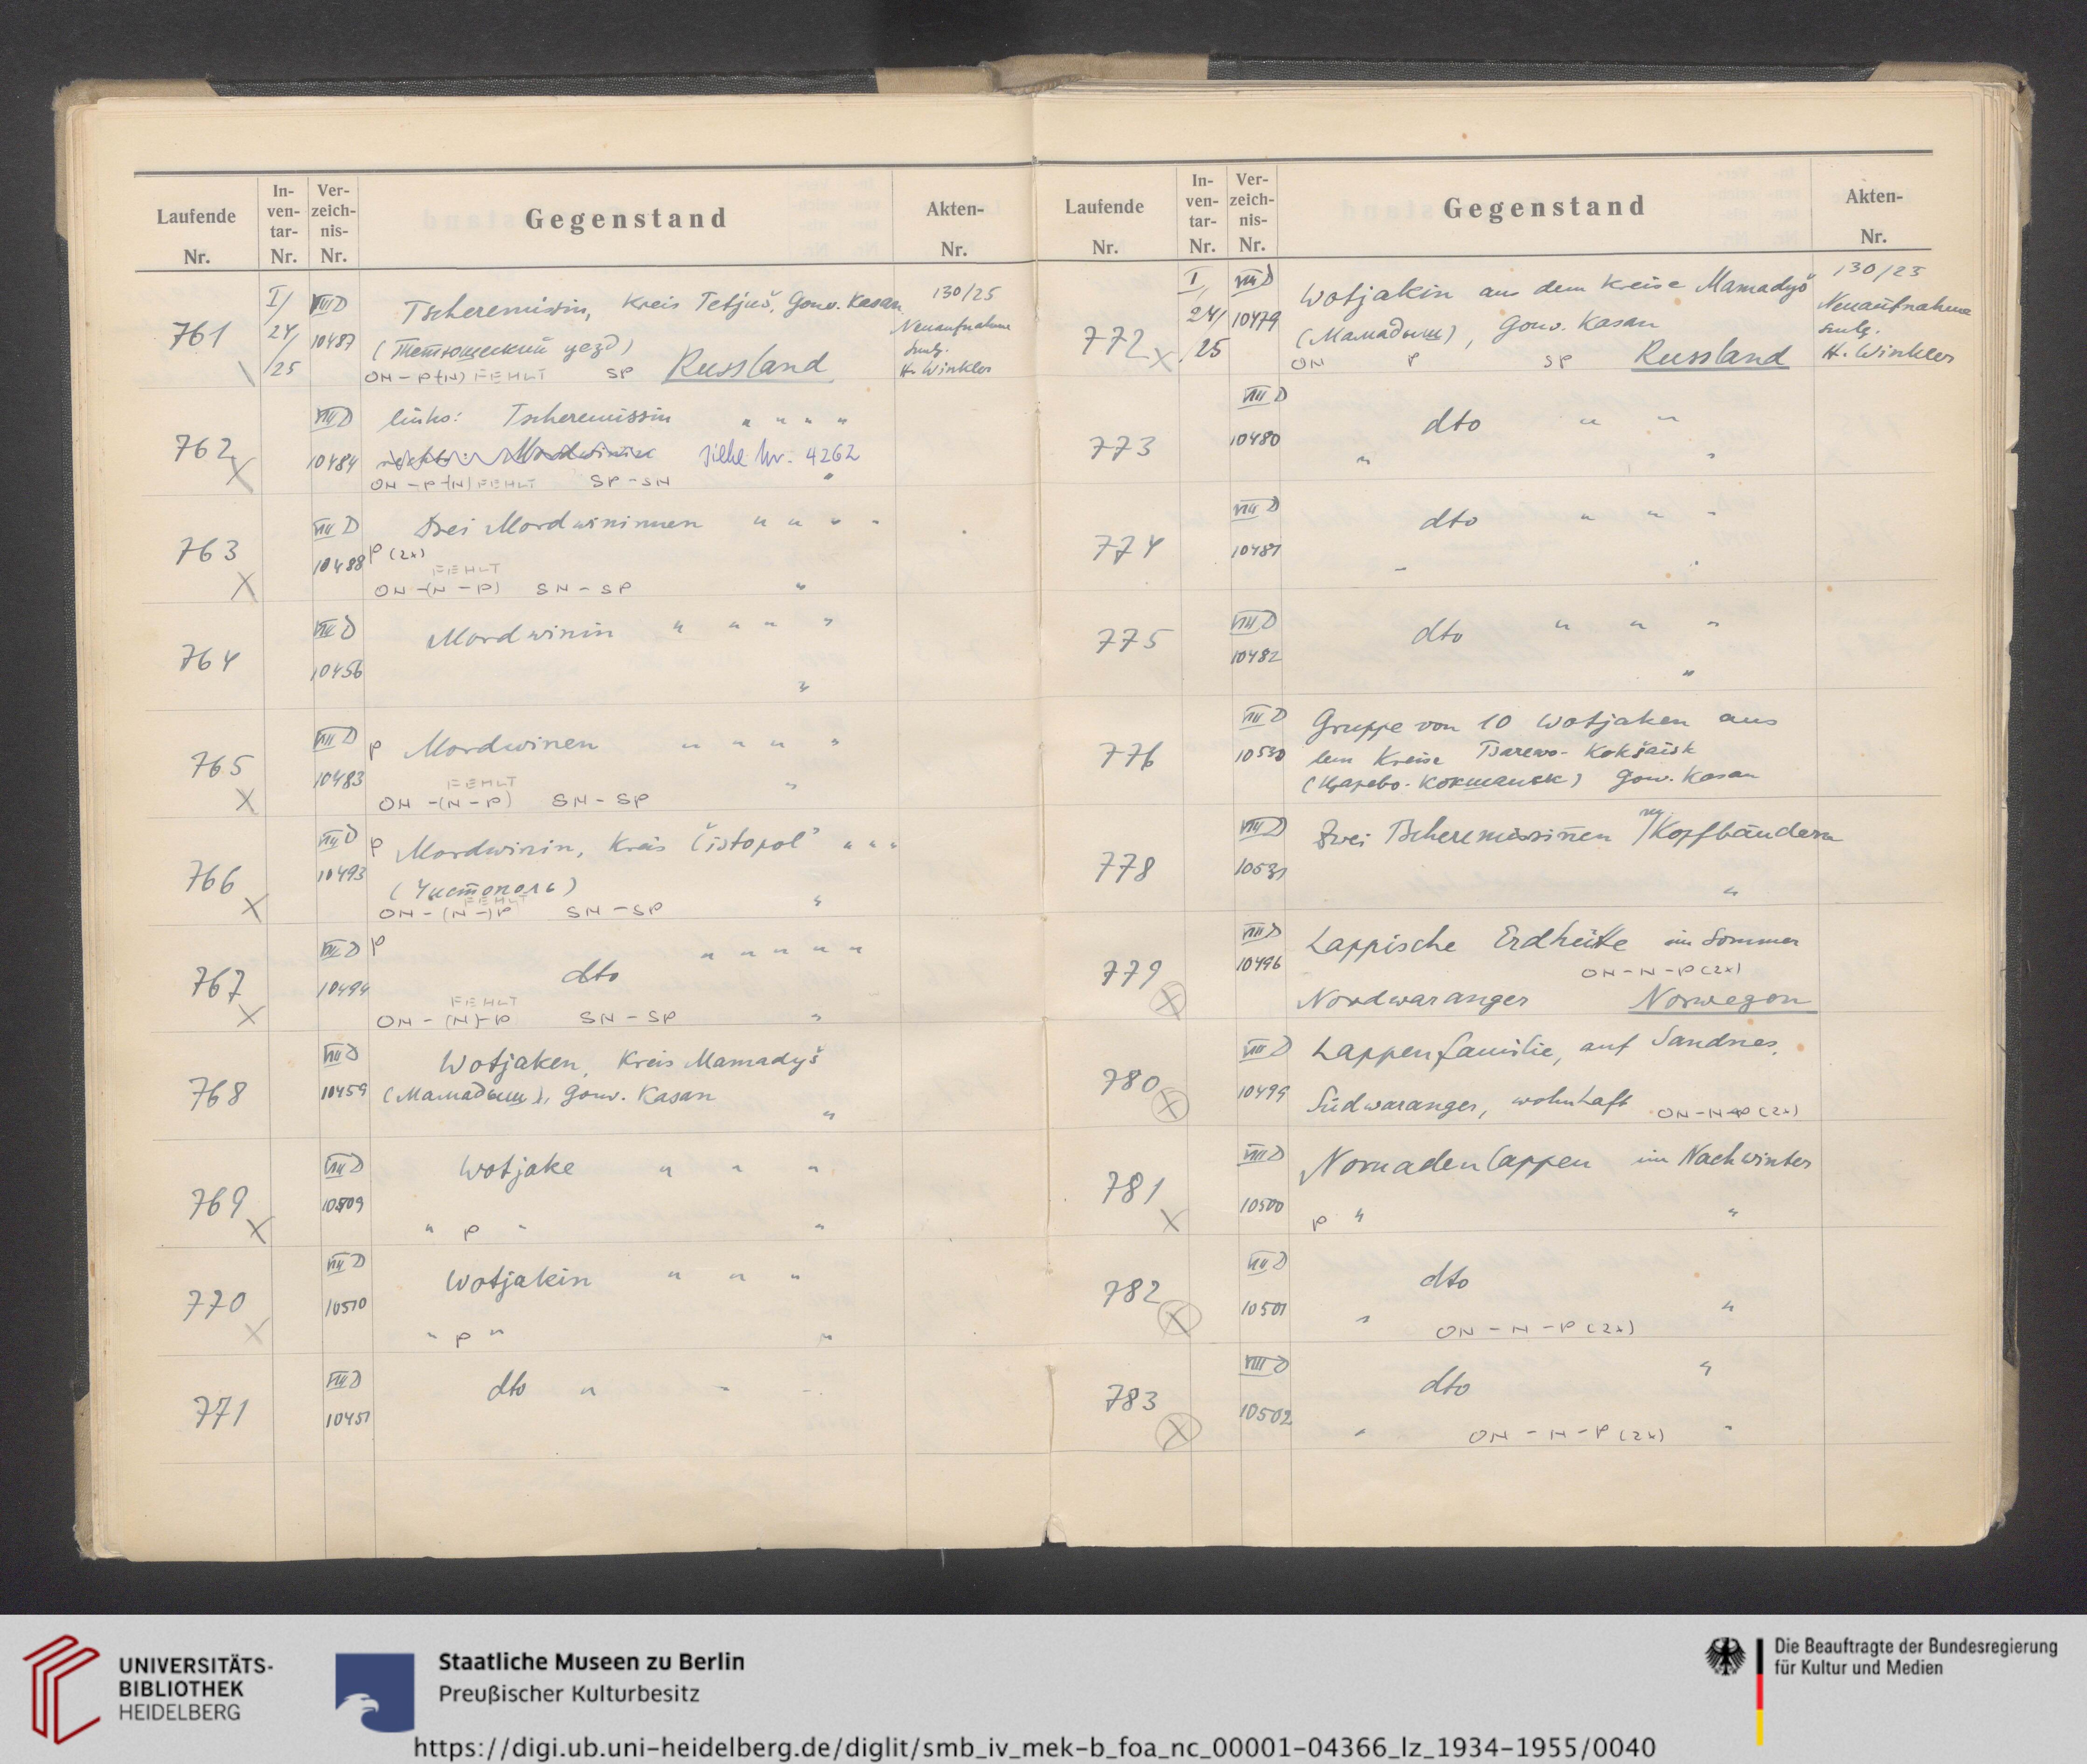 Laufende Nr.
In-ven-tar-Nr.
Ver-zeich-nis-Nr.
Gegenstand
Akten-Nr.
761 I/24/25 VIII D 10487 Tscheremissin, Kreis Tetjuš, Gouv. Kasan 130/25
(Тетющеский уезд) Russland Neuaufnahme
ON - P (N) FEHLT SP Smlg. H. Winkler
762 X VIII D 10484 links: Tscheremissin " " " "
rechts: Mordwinin siehe Nr. 4262
ON - P (N) FEHLT SP - SN "
763 X VIII D 10488 Drei Mordwininnen " " " "
P (2x)
FEHLT
ON - (N - P) SN - SP "
764 VIII D 10456 Mordwinin " " " "
"
765 X VIII D 10483 P Mordwinen " " " "
FEHLT "
ON - (N - P) SN - SP
766 X VIII D 10493 P Mordwinin, Kreis Čistopol' " " "
(Чистополь)
FEHLT
ON - (N -) P SN - SP "
767 X VIII D 10494 P " " " " "
dto
FEHLT
ON - (N) - P SN - SP "
768 VIII D 10459 Wotjaken, Kreis Mamadyš
(Мамадыш), Gouv. Kasan
"
769 X VIII D 10509 Wotjake " " "
" P " "
770 X VIII D 10510 Wotjakin " " "
" P " "
771 VIII D 10451 dto " " "
Laufende Nr.
In-ven-tar-Nr.
Ver-zeich-nis-Nr.
Gegenstand
Akten-Nr.
772 X I, 24/25 VIII D 10479 Wotjakin aus dem Kreise Mamadyš 130/25
(Мамадыш), Gouv. Kasan Neuaufnahme
ON P SP Russland Smlg. H. Winkler
773 VIII D 10480 dto " "
" "
774 VIII D 10481 dto " " "
" "
775 VIII D 10482 dto " " "
"
776 VIII D 10530 Gruppe von 10 Wotjaken aus
dem Kreise Tsarewo-Kokšaisk
(Царево-Кокшайск) Gouv. Kasan
778 VIII D 10531 Zwei Tscheremissinen m/Kopfbändern
"
779 X VIII D 10496 Lappische Erdhütte im Sommer
ON - N - P (2x)
Nordwaranger Norwegen
780 X VIII D 10499 Lappenfamilie, auf Sandnes,
Südwaranger, wohnhaft ON - N - P (2x)
781 X VIII D 10500 Nomadenlappen im Nachwinter
P " "
782 X VIII D 10501 dto
" ON - N - P (2x) "
783 X VIII D 10502 dto "
" ON - N - P (2x) "
UNIVERSITÄTS-
BIBLIOTHEK
HEIDELBERG
Staatliche Museen zu Berlin
Preußischer Kulturbesitz
Die Beauftragte der Bundesregierung
für Kultur und Medien
https://digi.ub.uni-heidelberg.de/diglit/smb_iv_mek-b_foa_nc_00001-04366_lz_1934-1955/0040